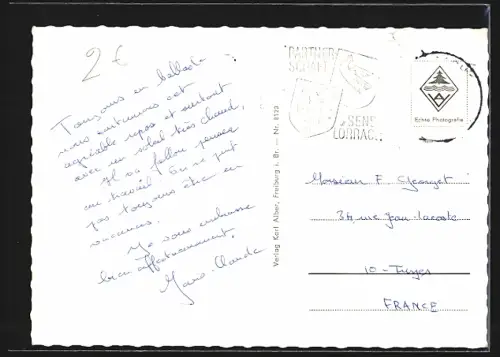 2 €
Toujours en ballade
nous
agréable repos et surtout
avec un soleil très chaud,
Il va falloir penser
au travail. On ne peut
pas toujours être en
vacances.
Je vous embrasse
bien affectueusement.
Marie-Claude
Verlag Karl Alber, Freiburg i. Br. — Nr. 8123
PARTNER
SCHAFT
SENS
LÖRRACH
Echte Photografie
Monsieur F. Georget
34 rue Jean Lacoste
10-Troyes
FRANCE